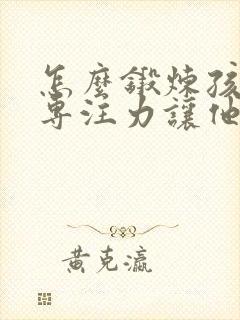 怎麼鍛煉孩
專注力讓他
黃克瀛